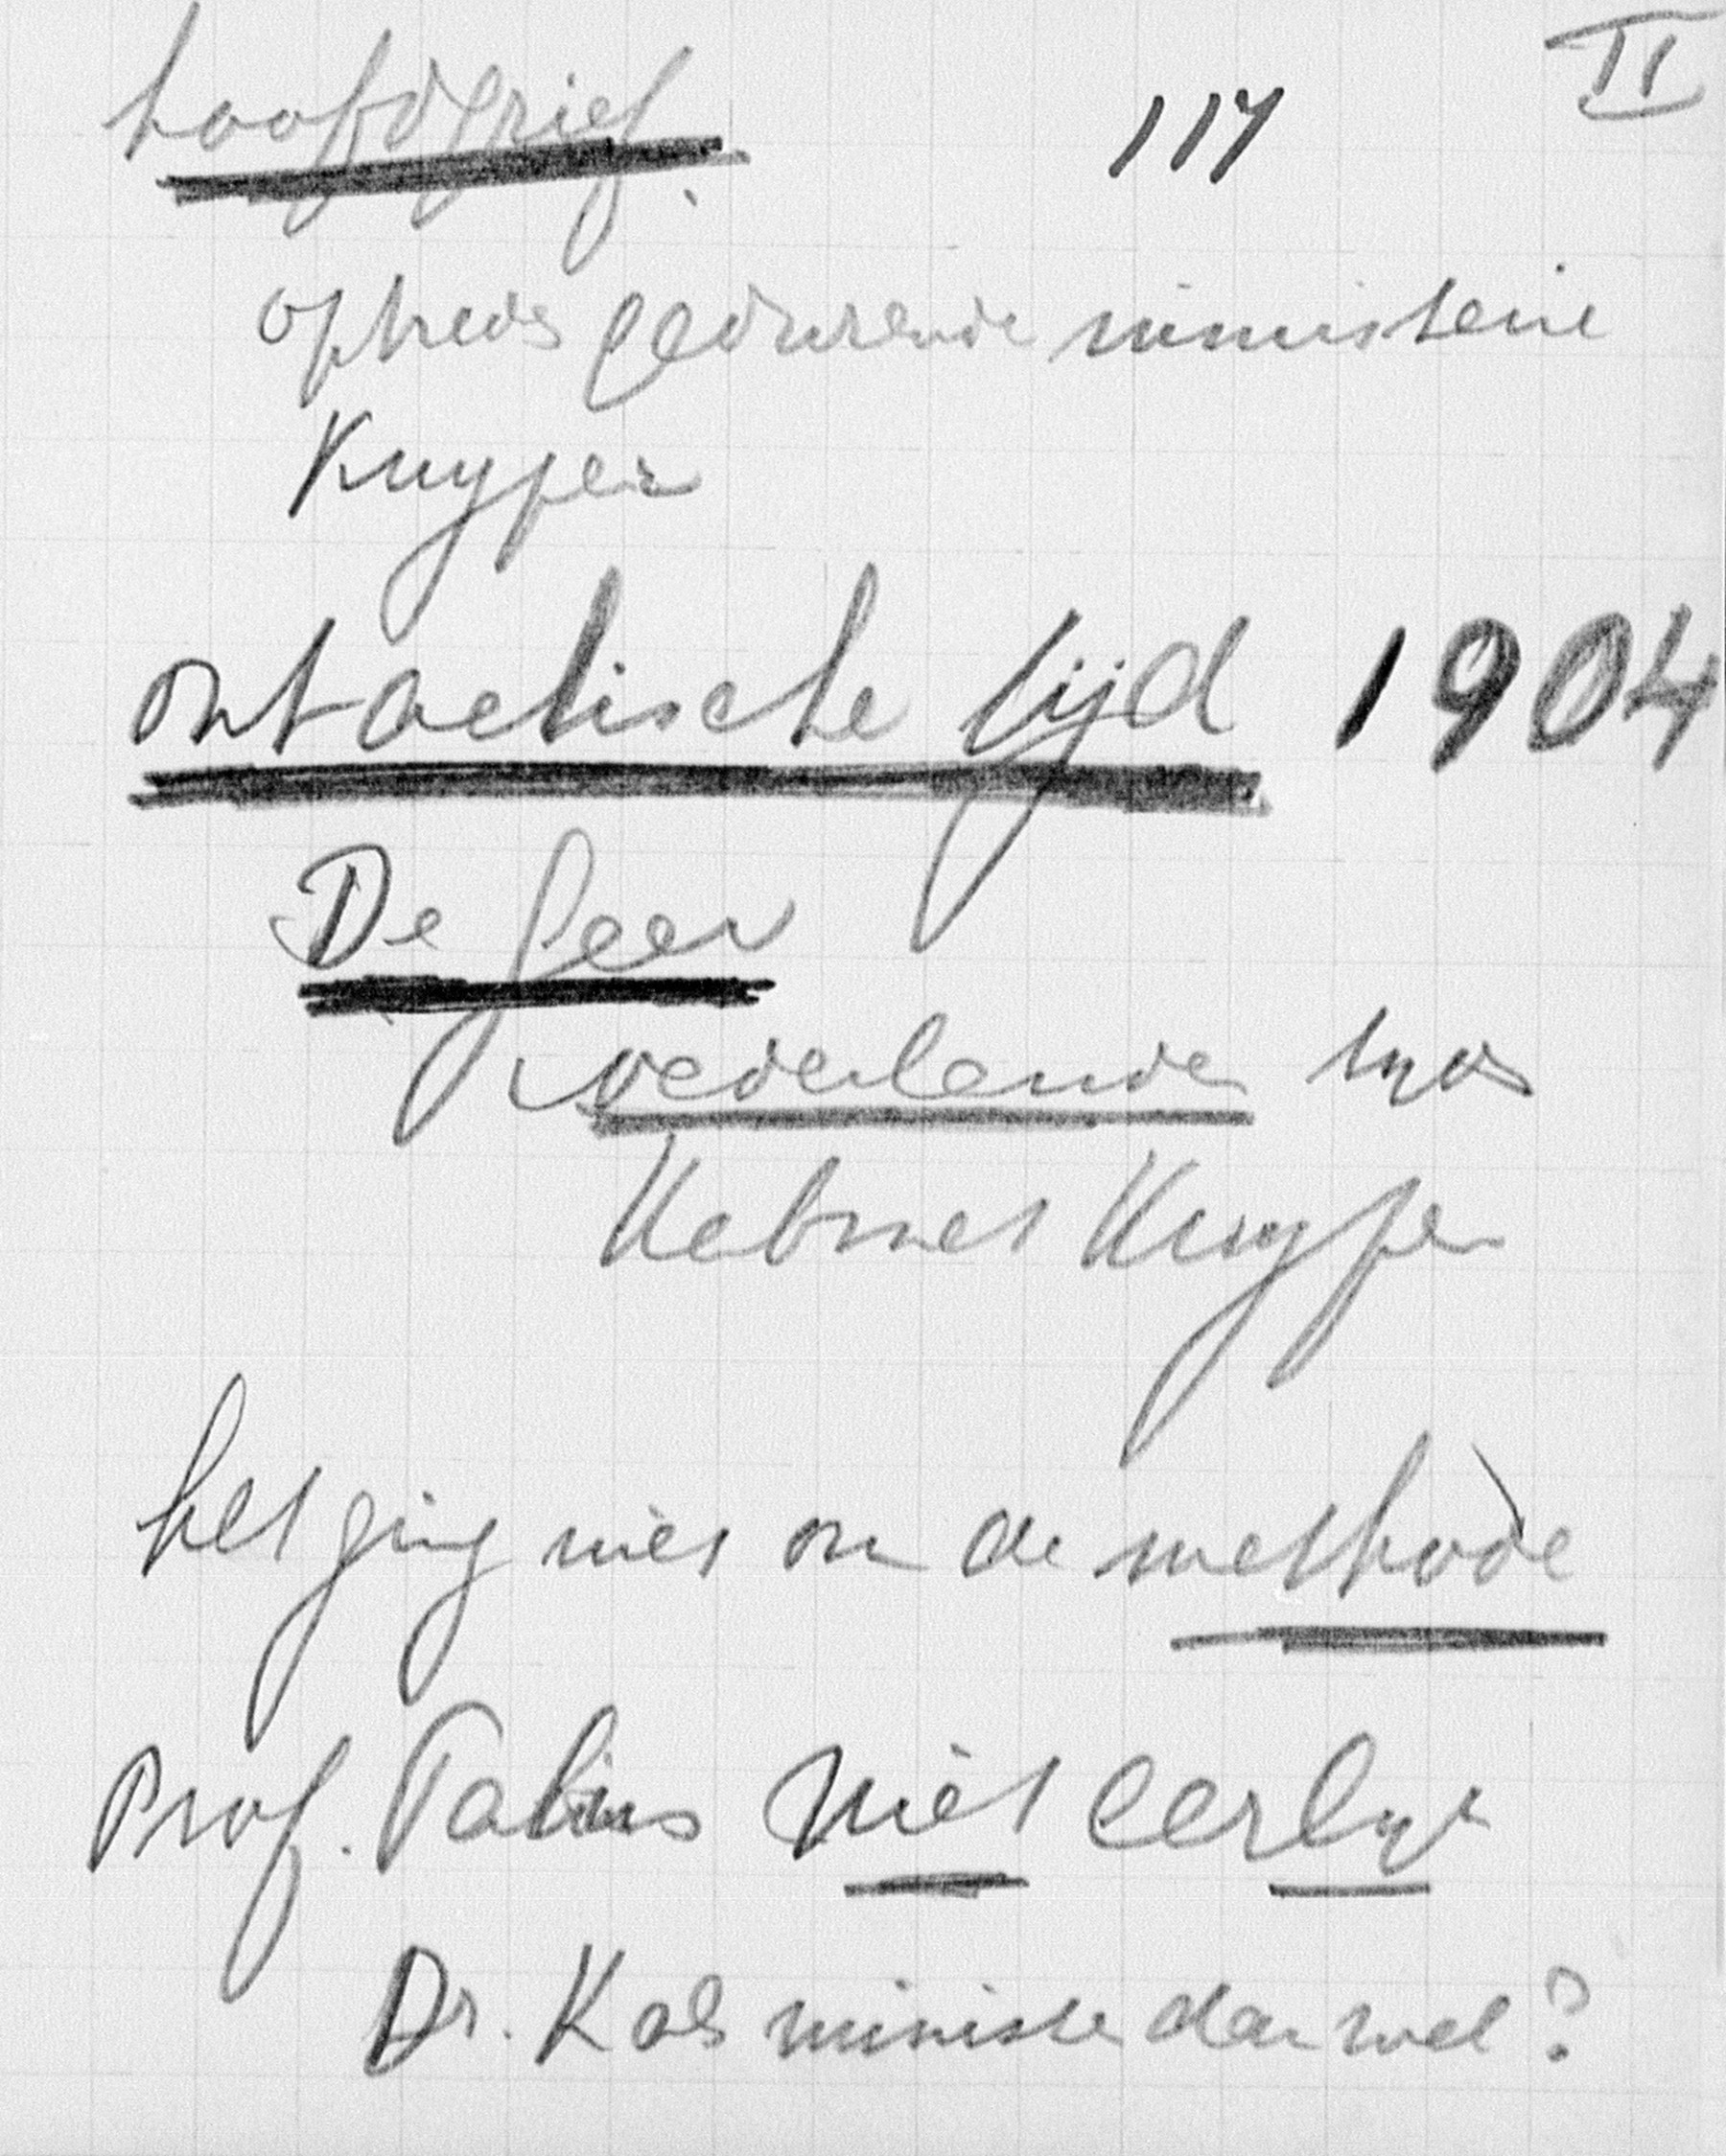 II
hoofdgrief. 117
optreden gedurende ministerie
Kuyper
ontactische tijd 1904
De Geer
nederlande
Kabinet Kuyper
het ging niet om de methode
Prof. Fabius niet eerlijk
Dr. K als minister dan wel?